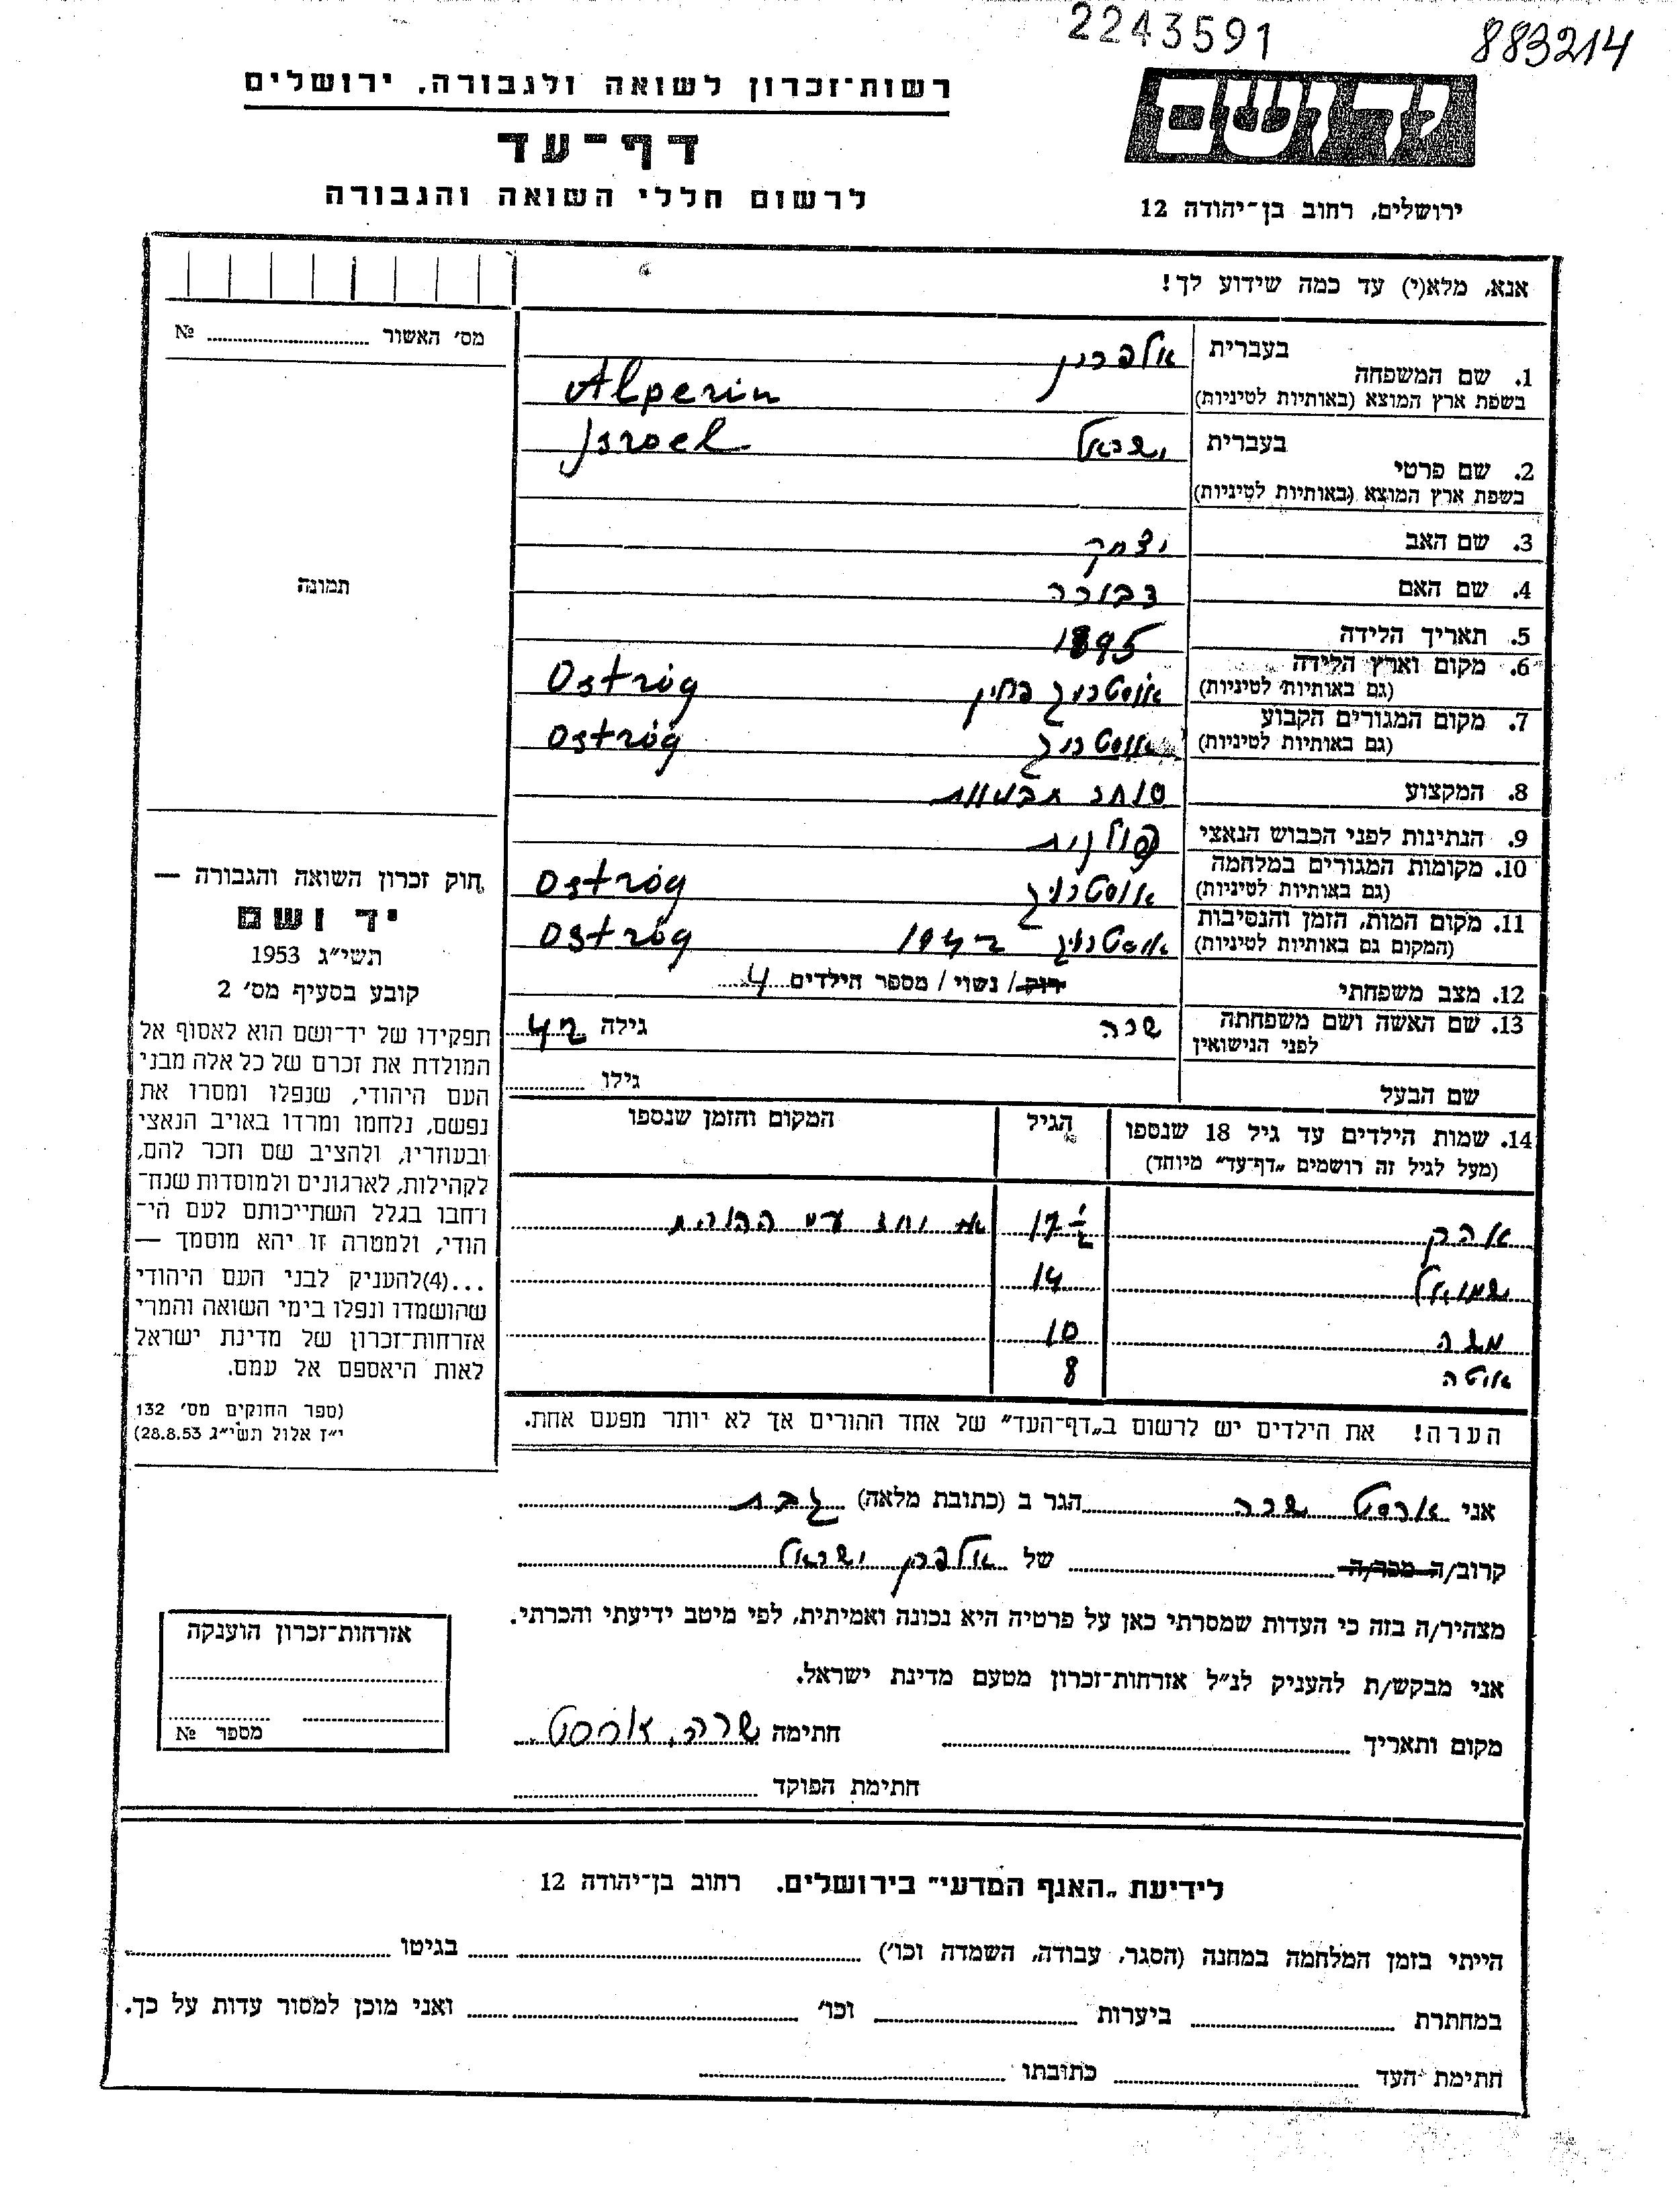 2243591
883214
רשות־זכרון לשואה ולגבורה, ירושלים
ידושם
דף־עד
לרשום חללי השואה והגבורה
ירושלים, רחוב בן־יהודה 12
אנא, מלא(י) עד כמה שידוע לך!
מס׳ האשור № 
תמונה
1. שם המשפחה
בעברית אלפרין
בשפת ארץ המוצא (באותיות לטיניות) Alperin
2. שם פרטי
בעברית ישראל Jsroel
בשפת ארץ המוצא (באותיות לטיניות)
3. שם האב יצחק
4. שם האם דבורה
5. תאריך הלידה 1895
6. מקום וארץ הלידה
(גם באותיות לטיניות) Ostróg
7. מקום המגורים הקבוע
(גם באותיות לטיניות) אוסטרוג Ostróg
8. המקצוע סוחר תבואות
9. הנתינות לפני הכבוש הנאצי פולנית
10. מקומות המגורים במלחמה
(גם באותיות לטיניות) אוסטרוג Ostróg
11. מקום המות, הזמן והנסיבות
(המקום גם באותיות לטיניות) אוסטרוג Ostróg
12. מצב משפחתי רוק/ נשוי / מספר הילדים 4
13. שם האשה ושם משפחתה
לפני הנישואין שרה גילה
שם הבעל גילו
14. שמות הילדים עד גיל 18 שנספו
(מעל לגיל זה רושמים „דף־עד״ מיוחד)
הגיל
המקום והזמן שנספו
אהרן 17 יחד עם ההורים
שמואל 14
10
8
הערה! את הילדים יש לרשום ב„דף־העד״ של אחד ההורים אך לא יותר מפעם אחת.
חוק זכרון השואה והגבורה —
יד ושם
תשי״ג 1953
קובע בסעיף מס׳ 2
תפקידו של יד־ושם הוא לאסוף אל
המולדת את זכרם של כל אלה מבני
העם היהודי, שנפלו ומסרו את
נפשם, נלחמו ומרדו באויב הנאצי
ובעוזריו, ולהציב שם וזכר להם,
לקהילות, לארגונים ולמוסדות שנח־
רחבו בגלל השתייכותם לעם הי־
הודי, ולמטרה זו יהא מוסמך —
...(4)להעניק לבני העם היהודי
שהושמדו ונפלו בימי השואה והמרי
אזרחות־זכרון של מדינת ישראל
לאות היאספם אל עמם.
(ספר החוקים מס׳ 132
י״ז אלול תשי״ג 28.8.53)
אני שרה הגר ב (כתובת מלאה) גבת
קרוב/ה מכר/ה של אלפרין ישראל
מצהיר/ה בזה כי העדות שמסרתי כאן על פרטיה היא נכונה ואמיתית, לפי מיטב ידיעתי והכרתי.
אני מבקש/ת להעניק לנ״ל אזרחות־זכרון מטעם מדינת ישראל.
מקום ותאריך חתימה שרה
חתימת הפוקד
אזרחות־זכרון הוענקה
מספר №
לידיעת „האגף המדעי״ בירושלים. רחוב בן־יהודה 12
הייתי בזמן המלחמה במחנה (הסגר, עבודה, השמדה וכו׳) בגיטו
במחתרת ביערות וכו׳ ואני מוכן למסור עדות על כך.
חתימת העד כתובתו